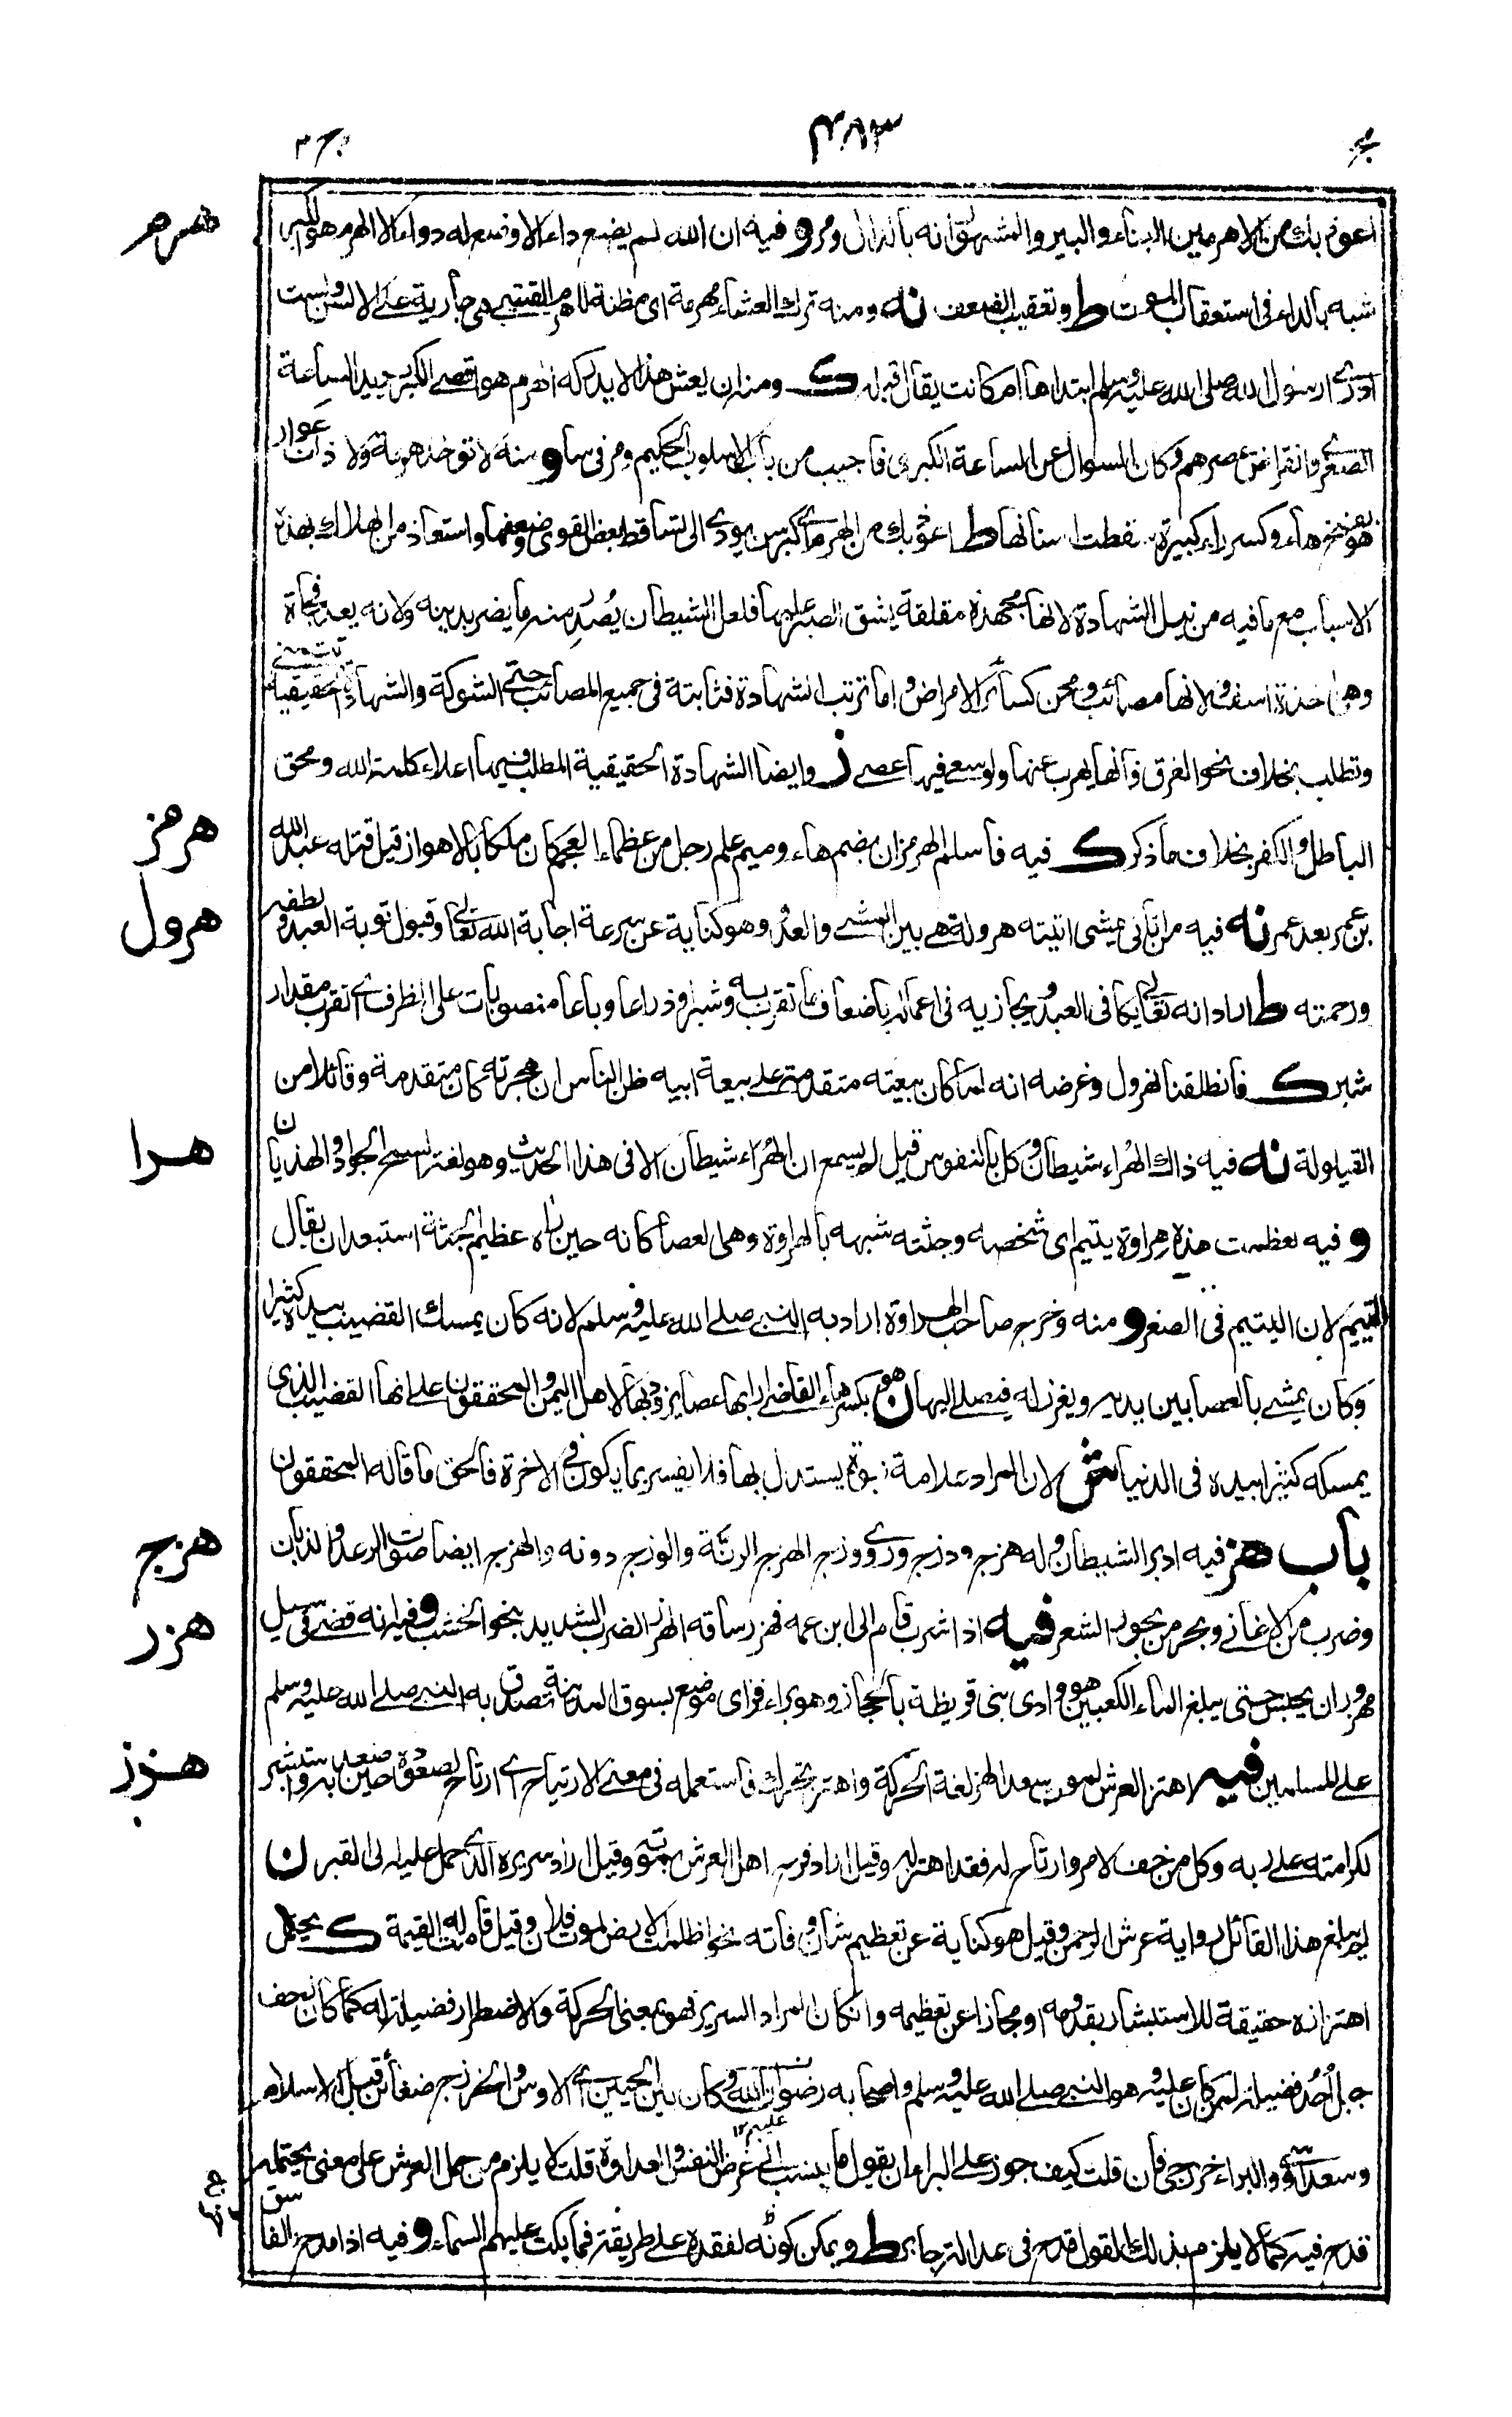 ٤٨٣
هرم
اعوذ بك من الاهرمين البناء والبير والمشهور انه بالدال ومر و فيه ان الله لم يضع داء الا وضع له دواء الا الهرم هو الكبر
شبه بالداء فى استعقاب الموت ط وتعقيب الضعف نه ومنه ترك العشاء مهرمة اى مظنة للهرم القتيبى هى جارية على الالسن ولست
ادرى ارسول الله صلى الله عليه وسلم ابتدأها ام كانت يقال قبله ك ومنه ان يعش هذا لا يدركه الهرم هو اقصى الكبر يريد الساعة
الصغرى وانقراض عصرهم وكان السوال عن الساعة الكبرى فاجيب من باب الاسلوب الحكيم ومر فى سا و منه لا توخذ هرمة ولا ذات عوار
هو بفتح هاء وكسر راء كبيرة سقطت اسنانها ط اعوذ بك من الهرم اى كبر سن يودى الى تساقط بعض القوى وضعفها واستعاذ من الهلاك بهذه
الاسباب مع ما فيه من نيل الشهادة لانها مجهدة مقلقة يشق الصبر عليها فلعل الشيطان يصدر منه ما يضر بدينه ولانه يعد فجأة
وهى اخذة اسف ولانها مصائب ومحن كسائر الامراض واما ترتب الشهادة فثابتة فى جميع المصائب حتى الشوكة والشهادة الحقيقية تتمنى
وتطلب بخلاف نحو الغرق فانها يهرب عنها ولو سعى فيها عصى ز وايضا الشهادة الحقيقية المطلب فيها اعلاء كلمة الله ومحق
هرمز
الباطل والكفر بخلاف ما ذكر ك فيه فاسلم الهرمزان بضم هاء وميم علم رجل من عظماء العجم كان ملكا بالاهواز قيل قتله عبد الله
هرول
بن عمر بعد عمر نه فيه من اتانى يمشى اتيته هرولة هى بين المشى والعدو وهو كناية عن سرعة اجابة الله تعالى وقبول توبة العبد ولطفه
ورحمته ط اراد انه تعالى يكافى العبد ويجازيه فى اعماله باضعاف ما تقرب به وشبرا وذراعا وباعا منصوبات على الظرف اى اتقرب مقدار
شبر ك فانطلقنا نهرول وغرضه انه لما كان بيعته متقدمة على بيعة ابيه ظن الناس ان هجرته كان متقدمة وقائلا من
هرا
القيلولة نه فيه ذاك الهراء شيطان وكل بالنفوس قيل لم يسمع ان الهراء شيطان الا فى هذا الحديث وهو لغة السمح الجواد والهذيان
و فيه لعظمت هذه هراوة يتيم اى شخصه وجثته شبهه بالهراوة وهى العصا كانه حين راه عظيم الجثة استبعد ان يقال
اليتيم لان اليتم فى الصغر و منه وخرج صاحب الهراوة اراد به النبى صلى الله عليه وسلم لانه كان يمسك القضيب بيده كثيرا
وكان يمشى بالعصا بين يديه ويغرز له فيصلى اليها ن هو بكسر هاء القاضى اراد بها عصا يزود بها لاهل اليمن والمحققون على انها القضيب الذى
يمسكه كثيرا بيده فى الدنيا ش لان المراد علامة نبوة يستدل بها فلا يفسر بما يكون فى الاخرة فالحق ما قاله المحققون
هزج
باب هز فيه ادبر الشيطان وله هزج ودزج وروى ووزج الهزج الرنة والوزج دونه والهزج ايضا صوت الرعد والذبان
هزر
وضرب من الاغانى وبحر من بحور الشعر فيه اذا شرب قام الى ابن عمه فهزر ساقه الهزر الضرب الشديد بنحو الخشب و فيه انه قضى فى سيل
مهزور ان يحبس حتى يبلغ الماء الكعبين هو وادى بنى قريظة بالحجاز وهو براء فزاى موضع بسوق المدينة تصدق به النبى صلى الله عليه وسلم
هزز
على المسلمين فيه اهتز العرش لموت سعد الهز لغة الحركة واهتز تحرك فاستعمله فى معنى الارتياح اى ارتاح لصعوده حين صعد به واستبشر
لكرامته على ربه وكل من خف لامر وارتاح له فقد اهتز له وقيل اراد فرح اهل العرش بموته وقيل اراد سريره الذى حمل عليه الى القبر ن
لم يبلغ هذا القائل رواية عرش الرحمن وقيل هو كناية عن تعظيم شان وفاته نحو اظلمت الارض لموت فلان وقيل قامت له القيمة ك يحتمل
اهتزازه حقيقة للاستبشار بقدومه او مجازا عن تعظيمه وان كان المراد السرير فهو بمعنى الحركة والاضطرار فضيلة له كما كان رجف
جبل احد فضيلة لمن كان عليه وهو النبى صلى الله عليه وسلم واصحابه رضوان الله عليهم وكان بين الحيين اى الاوس والخزرج ضغائن قبل الاسلام
وسعد اوسى والبراء خزرجى فان قلت كيف جوز على البراء ان يقول ما ينسب الى غرض النفس والعداوة قلت لا يلزم من حمل العرش على معنى يحتمله
قدح فيه كما لا يلزم بذلك القول قدح فى عدالة جابر ط ويمكن كونه لفقده على طريقة فما بكت عليهم السماء و فيه اذا مدح الفاسق